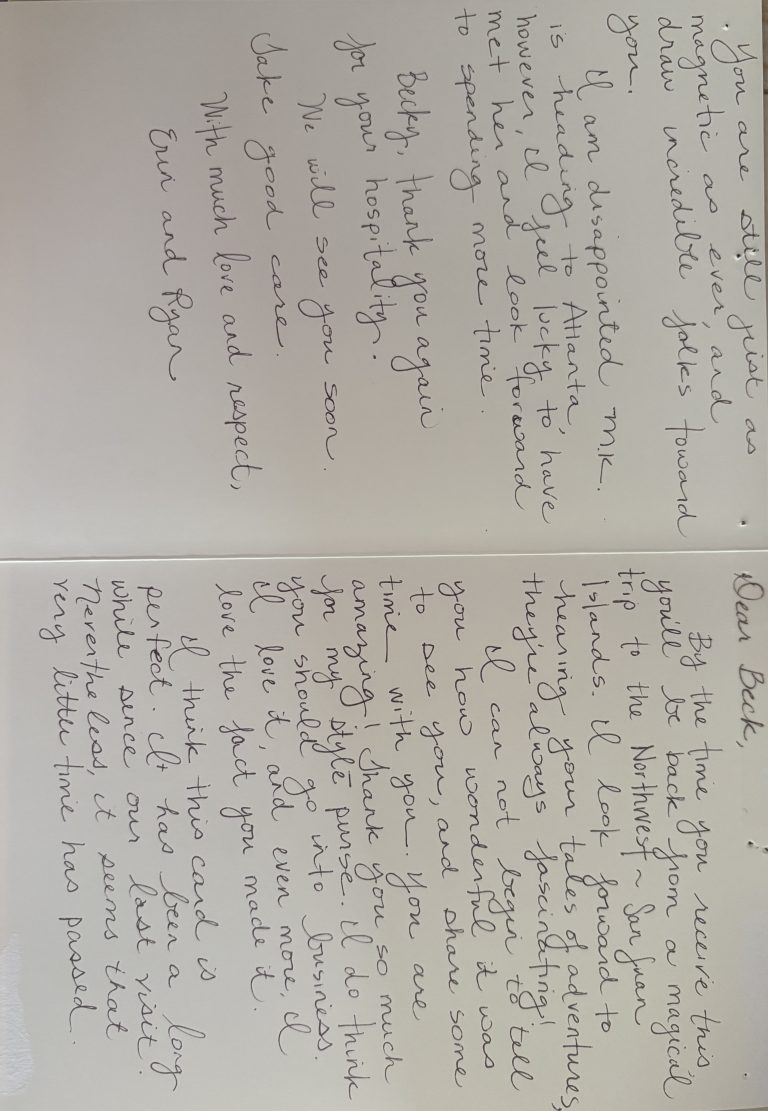 Dear Beck,
By the time you receive this
you'll be back from a magical
trip to the Northwest ~ San Juan
Islands. I look forward to
hearing your tales of adventures,
they're always fascinating!
I can not begin to tell
you how wonderful it was
to see you, and share some
time with you. You are
amazing! Thank you so much
for my style purse. I do think
you should go into business.
I love it, and even more, I
love the fact you made it.
I think this card is
perfect. It has been a long
while sence our last visit.
Nevertheless, it seems that
very little time has passed.
You are still just as
magnetic as ever, and
draw incredible folks toward
you.
I am disappointed M.K.
is heading to Atlanta,
however, I feel lucky to have
met her and look forward
to spending more time.
Becky, thank you again
for your hospitality.
We will see you soon.
Take good care.
With much love and respect,
Erin and Ryan